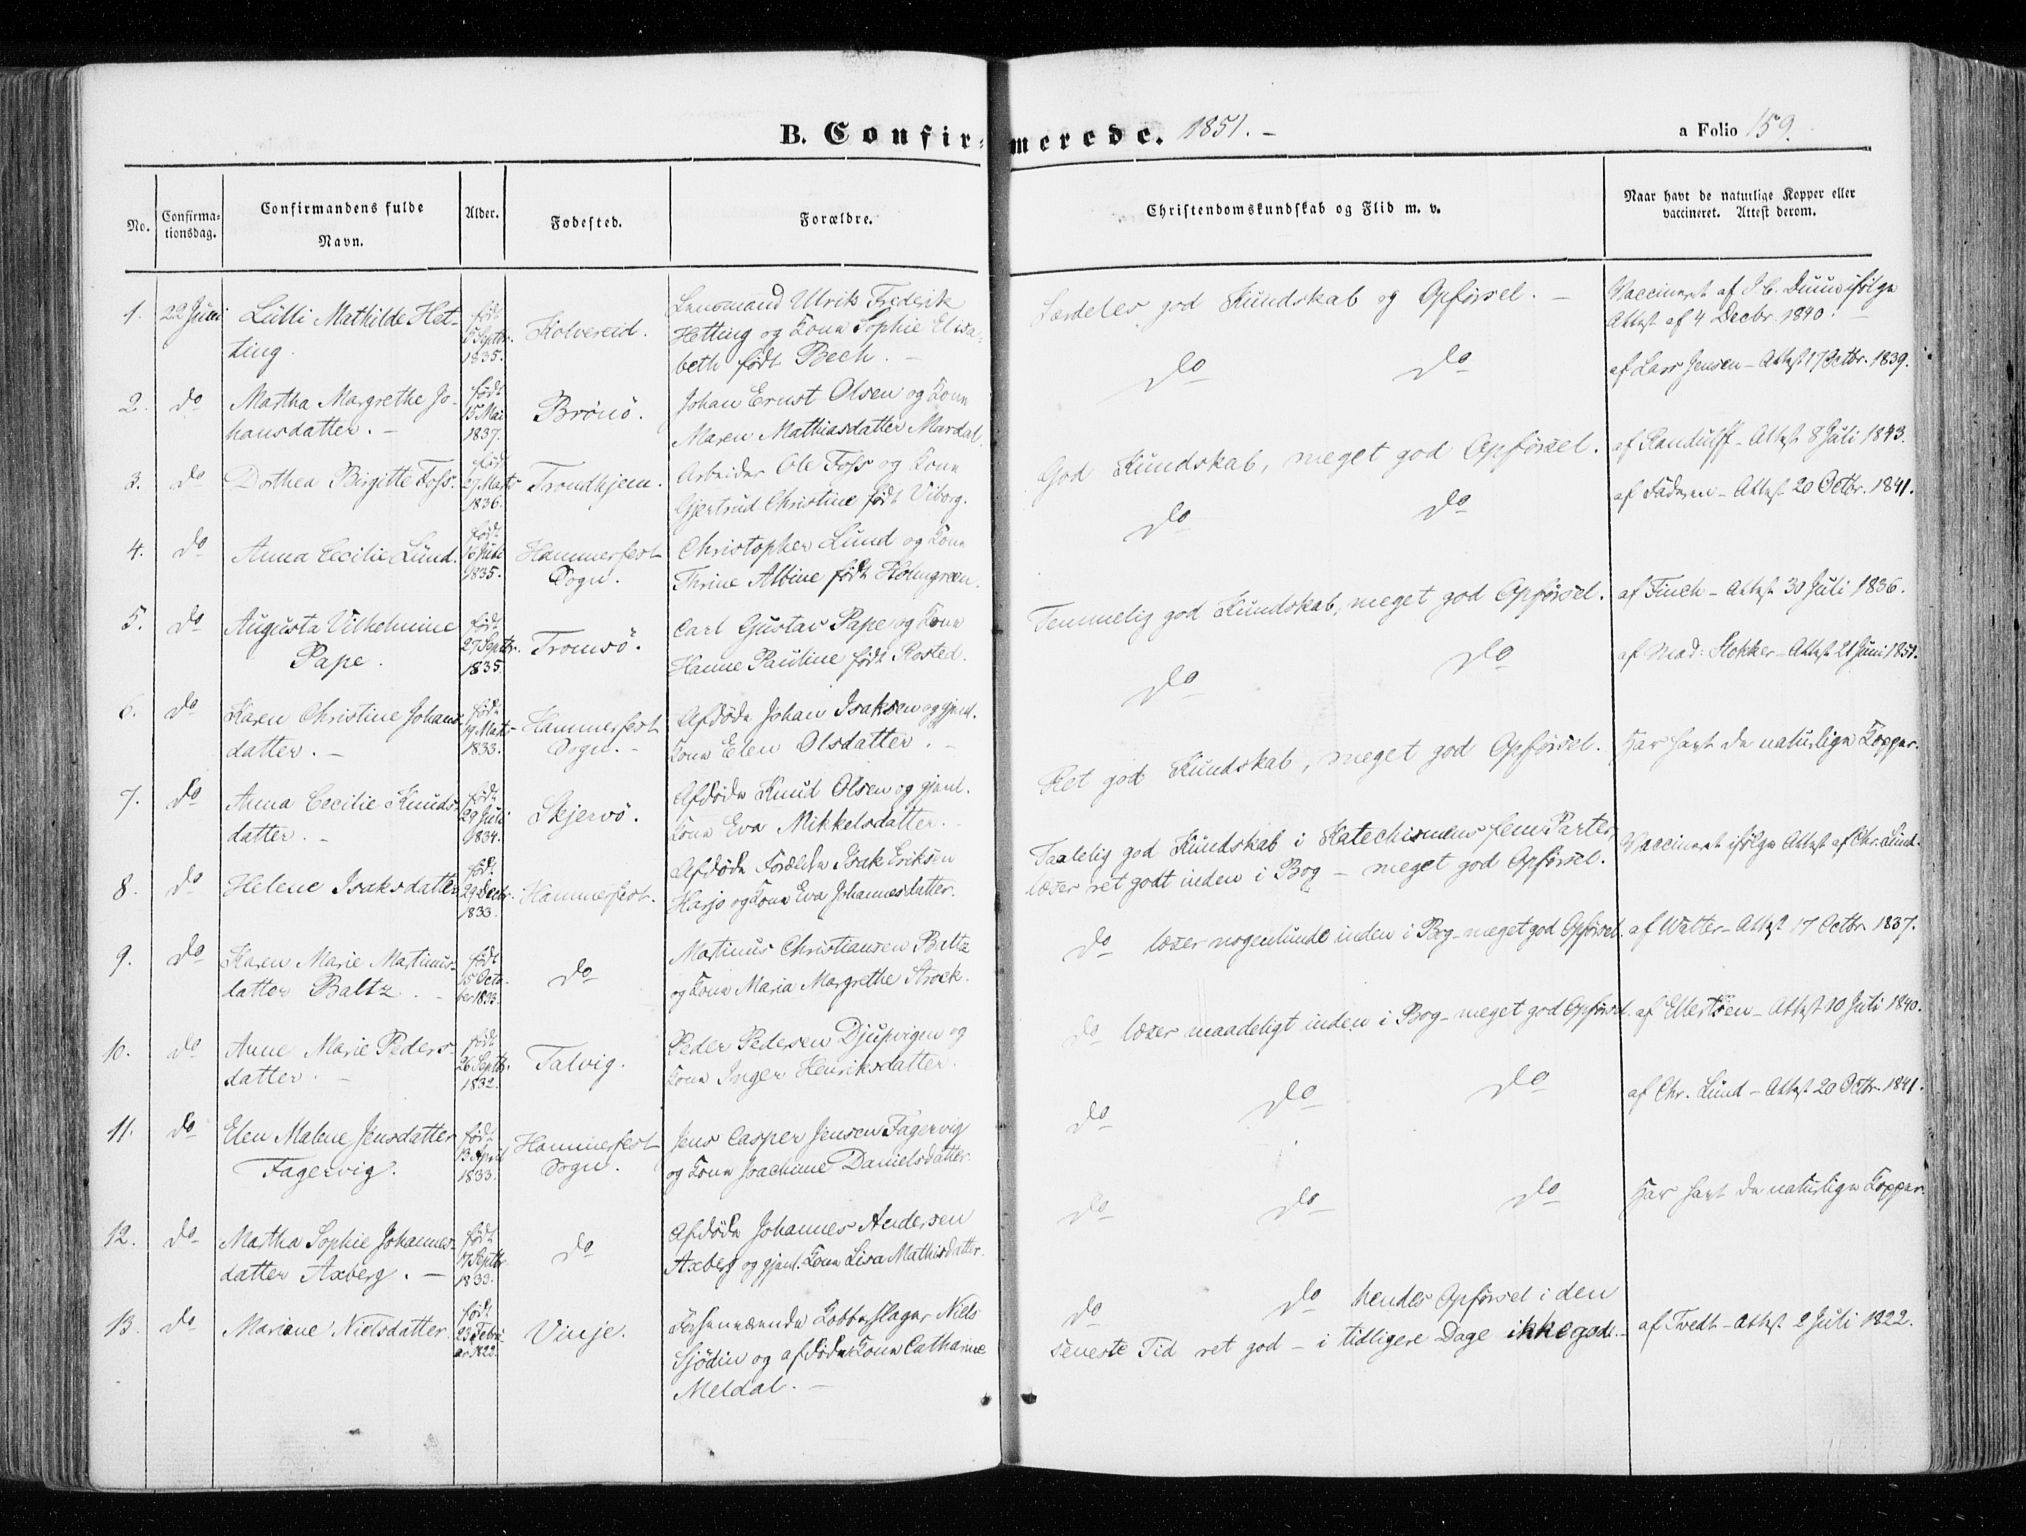 B. Confir- merede. 1851. -
a Folio 159.
No.
Confirma-
tionsdag.
Confirmandens fulde
Navn.
Alder.
Fødested.
Forældre.
Christendomskundskab og Flid m. v.
Naar havt de naturlige Kopper eller
vaccineret. Attest derom.
1. 22 Juni Lulli Mathilde Het-
ting.
født
Septbr.
1835.
Kolvereid.
Lensmand Ulrik Frederik
Hetting og Kone Sophie Elisa-
beth født Bech. -
Særdeles god Kundskab og Opførsel. -
Vaccineret af J. C. Duun ifølge
Attest af 4 Decbr. 1840. -
2. do Martha Margrethe Jo-
hansdatter. -
født
15 Mai
1837.
Brönö.
Johan Ernst Olsen og Kone
Maren Mathiasdatter Mardal.
do do
af Lars Jensen - Attest 17 Octbr. 1839.
3. do Dorthea Birgitte Foss.
født
27 Marts
1836.
Trondhjem.
Arbeider Ole Foss og Kone
Gjertrud Christine født Viborg.
God Kundskab, meget god Opførsel.
af Randulff - Attest 8 Juli 1843.
4. do Anna Cecilie Lund.
født
Juli
1835.
Hammerfest
Sogn.
Christopher Lund og Kone
Thrine Albine født Holmgreen.
do do
af Faderen - Attest 20 Octbr. 1841.
5. do Augusta Vilhelmine
Pape.
født
27 Septbr.
1835.
Tromsö.
Carl Gustav Pape og Kone
Hanne Pauline født Rosted.
Temmelig god Kundskab, meget god Opførsel.
af Finch - Attest 30 Juli 1836.
6. do Karen Christine Johans-
datter. -
født
19 Marts
1833.
Hammerfest
Sogn. -
Afdøde Johan Isaksen og gjenl.
Kone Elen Olsdatter. -
do do
af Mad: Stokker - Attest 21 Juni 1851.
7. do Anna Cecilie Knuds-
datter. -
født
29 Juli
1834.
Skjervö.
Afdøde Knud Olsen og gjenl.
Kone Eva Mikkelsdatter. -
Ret god Kundskab, meget god Opførsel.
Har havt de naturlige Kopper.
8. do Helene Isaksdatter
født
29 Decbr.
1833.
Hammerfest.
Afdøde Forældre Isak Eriksen
Harjo og Kone Eva Johannesdatter.
Taalelig god Kundskab i Katechismens fem Parter,
læser ret godt inden i Bog - meget god Opførsel.
Vaccineret ifølge Attest af Chr. Lund.
9. do Karen Marie Martinus-
datter Baltz. -
født
15 Octo-
ber 1833.
do
Martinus Christiansen Baltz
og Kone Maria Margrethe Strock.
do læser nogenlunde inden i Bog - meget god Opførsel.
af Watter - Attest 17 Octbr. 1837.
10. do Anne Marie Peders-
datter. -
født
26 Septbr.
1832.
Talvig.
Peder Pedersen Djupvigen og
Kone Inger Henriksdatter.
do læser maadeligt inden i Bog - meget god Opførsel.
af Ellertsen - Attest 10 Juli 1840.
11. do Elen Malene Jensdatter
Fagervig.
født
13 April
1833.
Hammerfest
Sogn.
Jens Casper Jensen Fagervig
og Kone Joachime Danielsdatter.
do do do
af Chr. Lund - Attest 20 Octbr. 1841.
12. do Martha Sophie Johannes-
datter Axberg. -
født
17 Septbr.
1833.
do
Afdøde Johannes Andersen
Axberg og gjenl. Kone Lisa Mathisdatter.
do do do
Har havt de naturlige Kopper.
13. do Mariane Nielsdatter.
født
23 Febru
ar 1822.
Vinje.
Forhenværende Kobberslager Niels
Sjödin og afdøde Kone Catharine
Meldal. -
do do hendes Opførsel i den
seneste Tid ret god - i tidligere Dage ikke god. -
af Tvedt - Attest 2 Juli 1822.